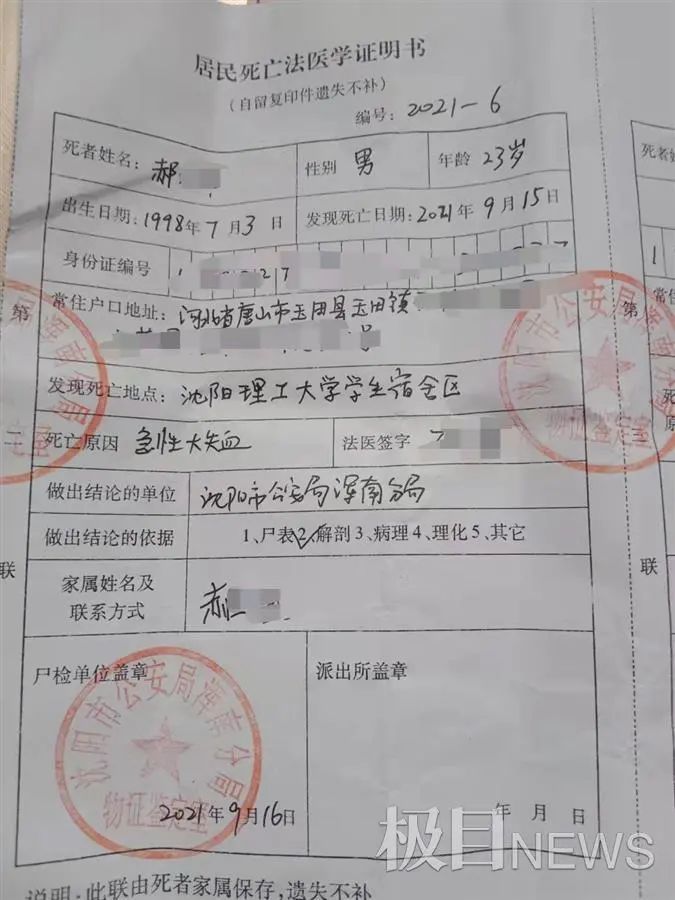 居民死亡法医学证明书
（自留复印件遗失不补）
编号：2021-6
死者姓名：郝 性别 男 年龄 23岁
出生日期：1998年7月3日 发现死亡日期：2021年9月15日
身份证编号
常住户口地址：河北省唐山市玉田县玉田镇
号
发现死亡地点：沈阳理工大学学生宿舍区
死亡原因 急性大失血 法医签字
做出结论的单位 沈阳市公安局浑南分局
做出结论的依据 1、尸表2、解剖3、病理4、理化5、其它
家属姓名及
联系方式
郝
尸检单位盖章 派出所盖章
沈阳市公安局浑南分局
物证鉴定室
2021年9月16日 年 月 日
说明：此联由死者家属保存，遗失不补
第
二
联
沈阳市公安局浑南分局
物证鉴定室
第
三
联
死者姓
1
常住
极目NEWS